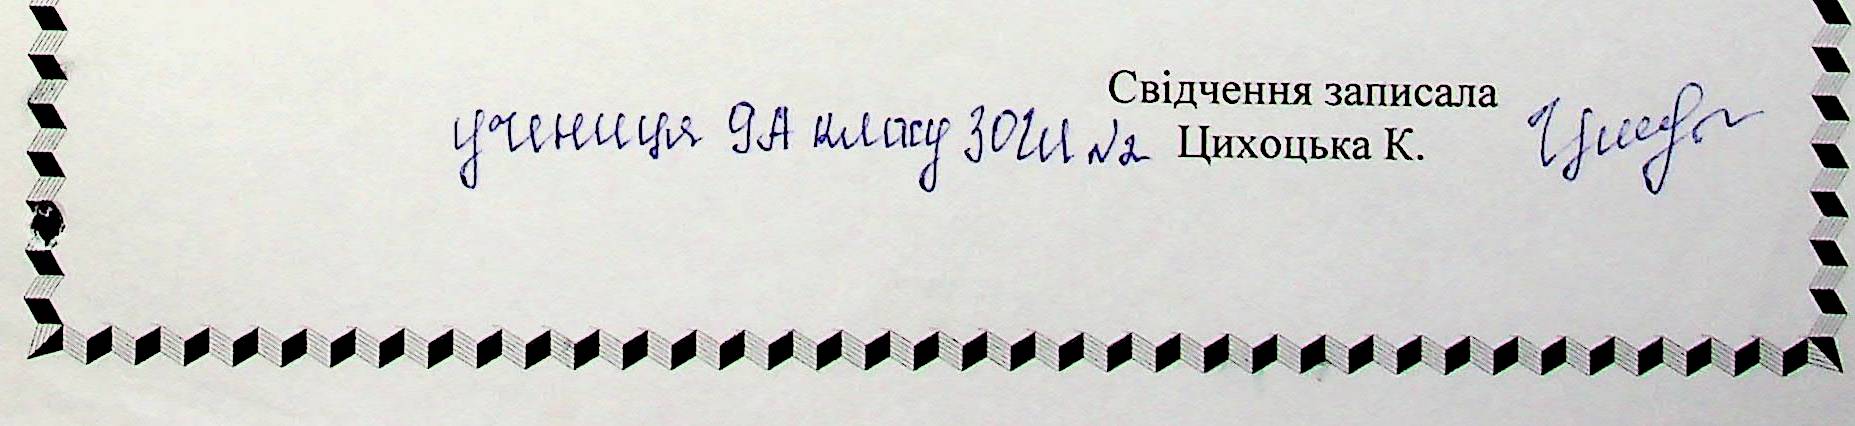 Свідчення записала
учениця 9А класу ЗОШ №2 Цихоцька К.